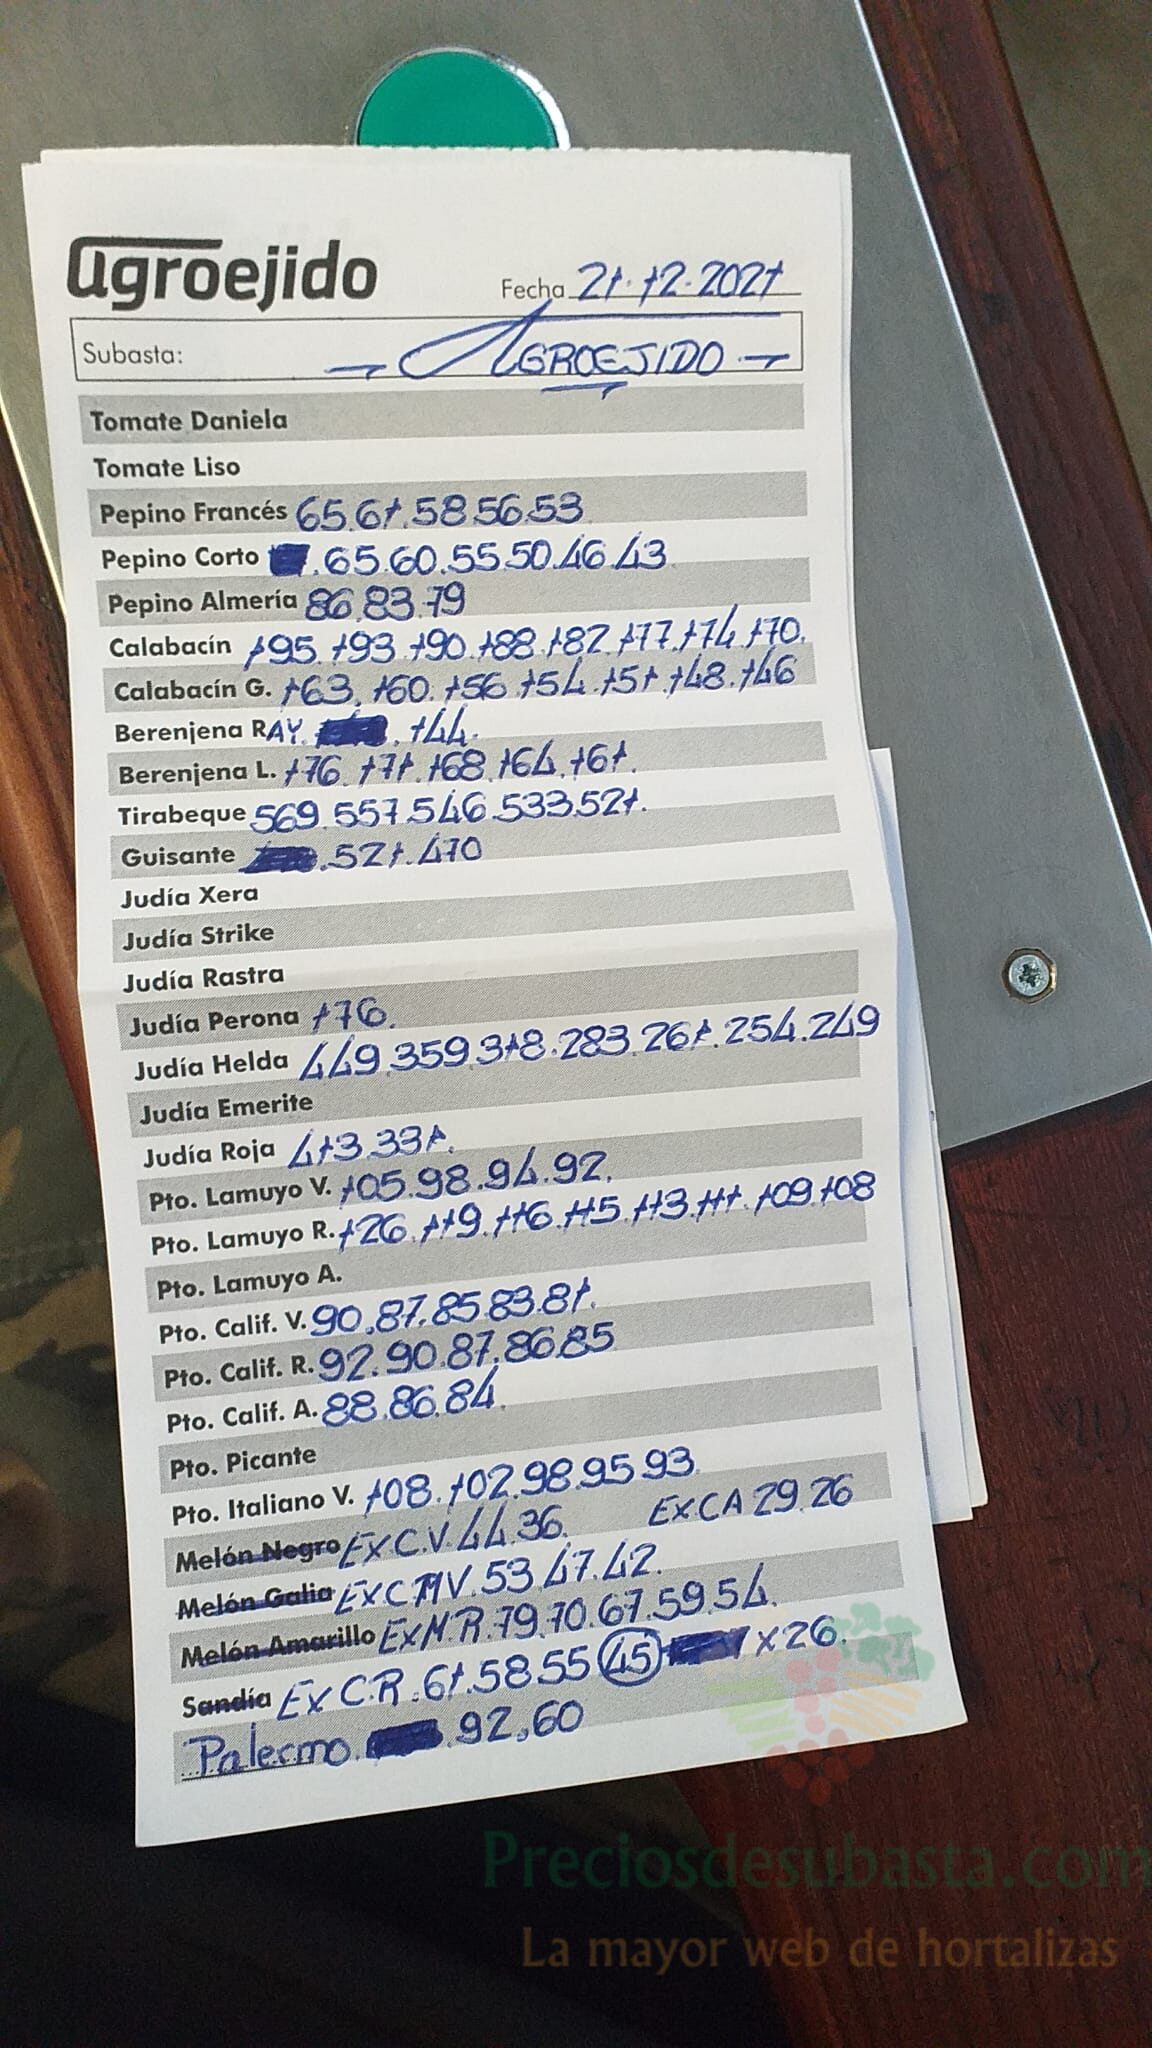 agroejido
Fecha 21.12.2021
Subasta: AGROEJIDO
Tomate Daniela
Tomate Liso
Pepino Francés 65.61.58.56.53
Pepino Corto .65.60.55.50.46.43
Pepino Almería 86.83.79
Calabacín 195.193.190.188.182.177.174.170.
Calabacín G. 163.160.156.154.151.148.146
Berenjena RAY. .144.
Berenjena L. 176.171.168.164.161.
Tirabeque 569.557.546.533.521.
Guisante .521.470
Judía Xera
Judía Strike
Judía Rastra
Judía Perona 176.
Judía Helda 449.359.318.283.261.254.249
Judía Emerite
Judía Roja 413.331.
Pto. Lamuyo V. 105.98.94.92.
Pto. Lamuyo R. 126.119.116.115.113.111.109.108
Pto. Lamuyo A.
Pto. Calif. V. 90.87.85.83.81.
Pto. Calif. R. 92.90.87.86.85
Pto. Calif. A. 88.86.84.
Pto. Picante
Pto. Italiano V. 108.102.98.95.93
Melón Negro EXC.V.44.36. EXCA 29.26
Melón Galia EXCMV.53.47.42.
Melón Amarillo EXM.R.79.70.67.59.54.
Sandía EXC.R.61.58.55 45 x26.
Palermo. .92.60
Preciosdesubasta.com
La mayor web de hortalizas